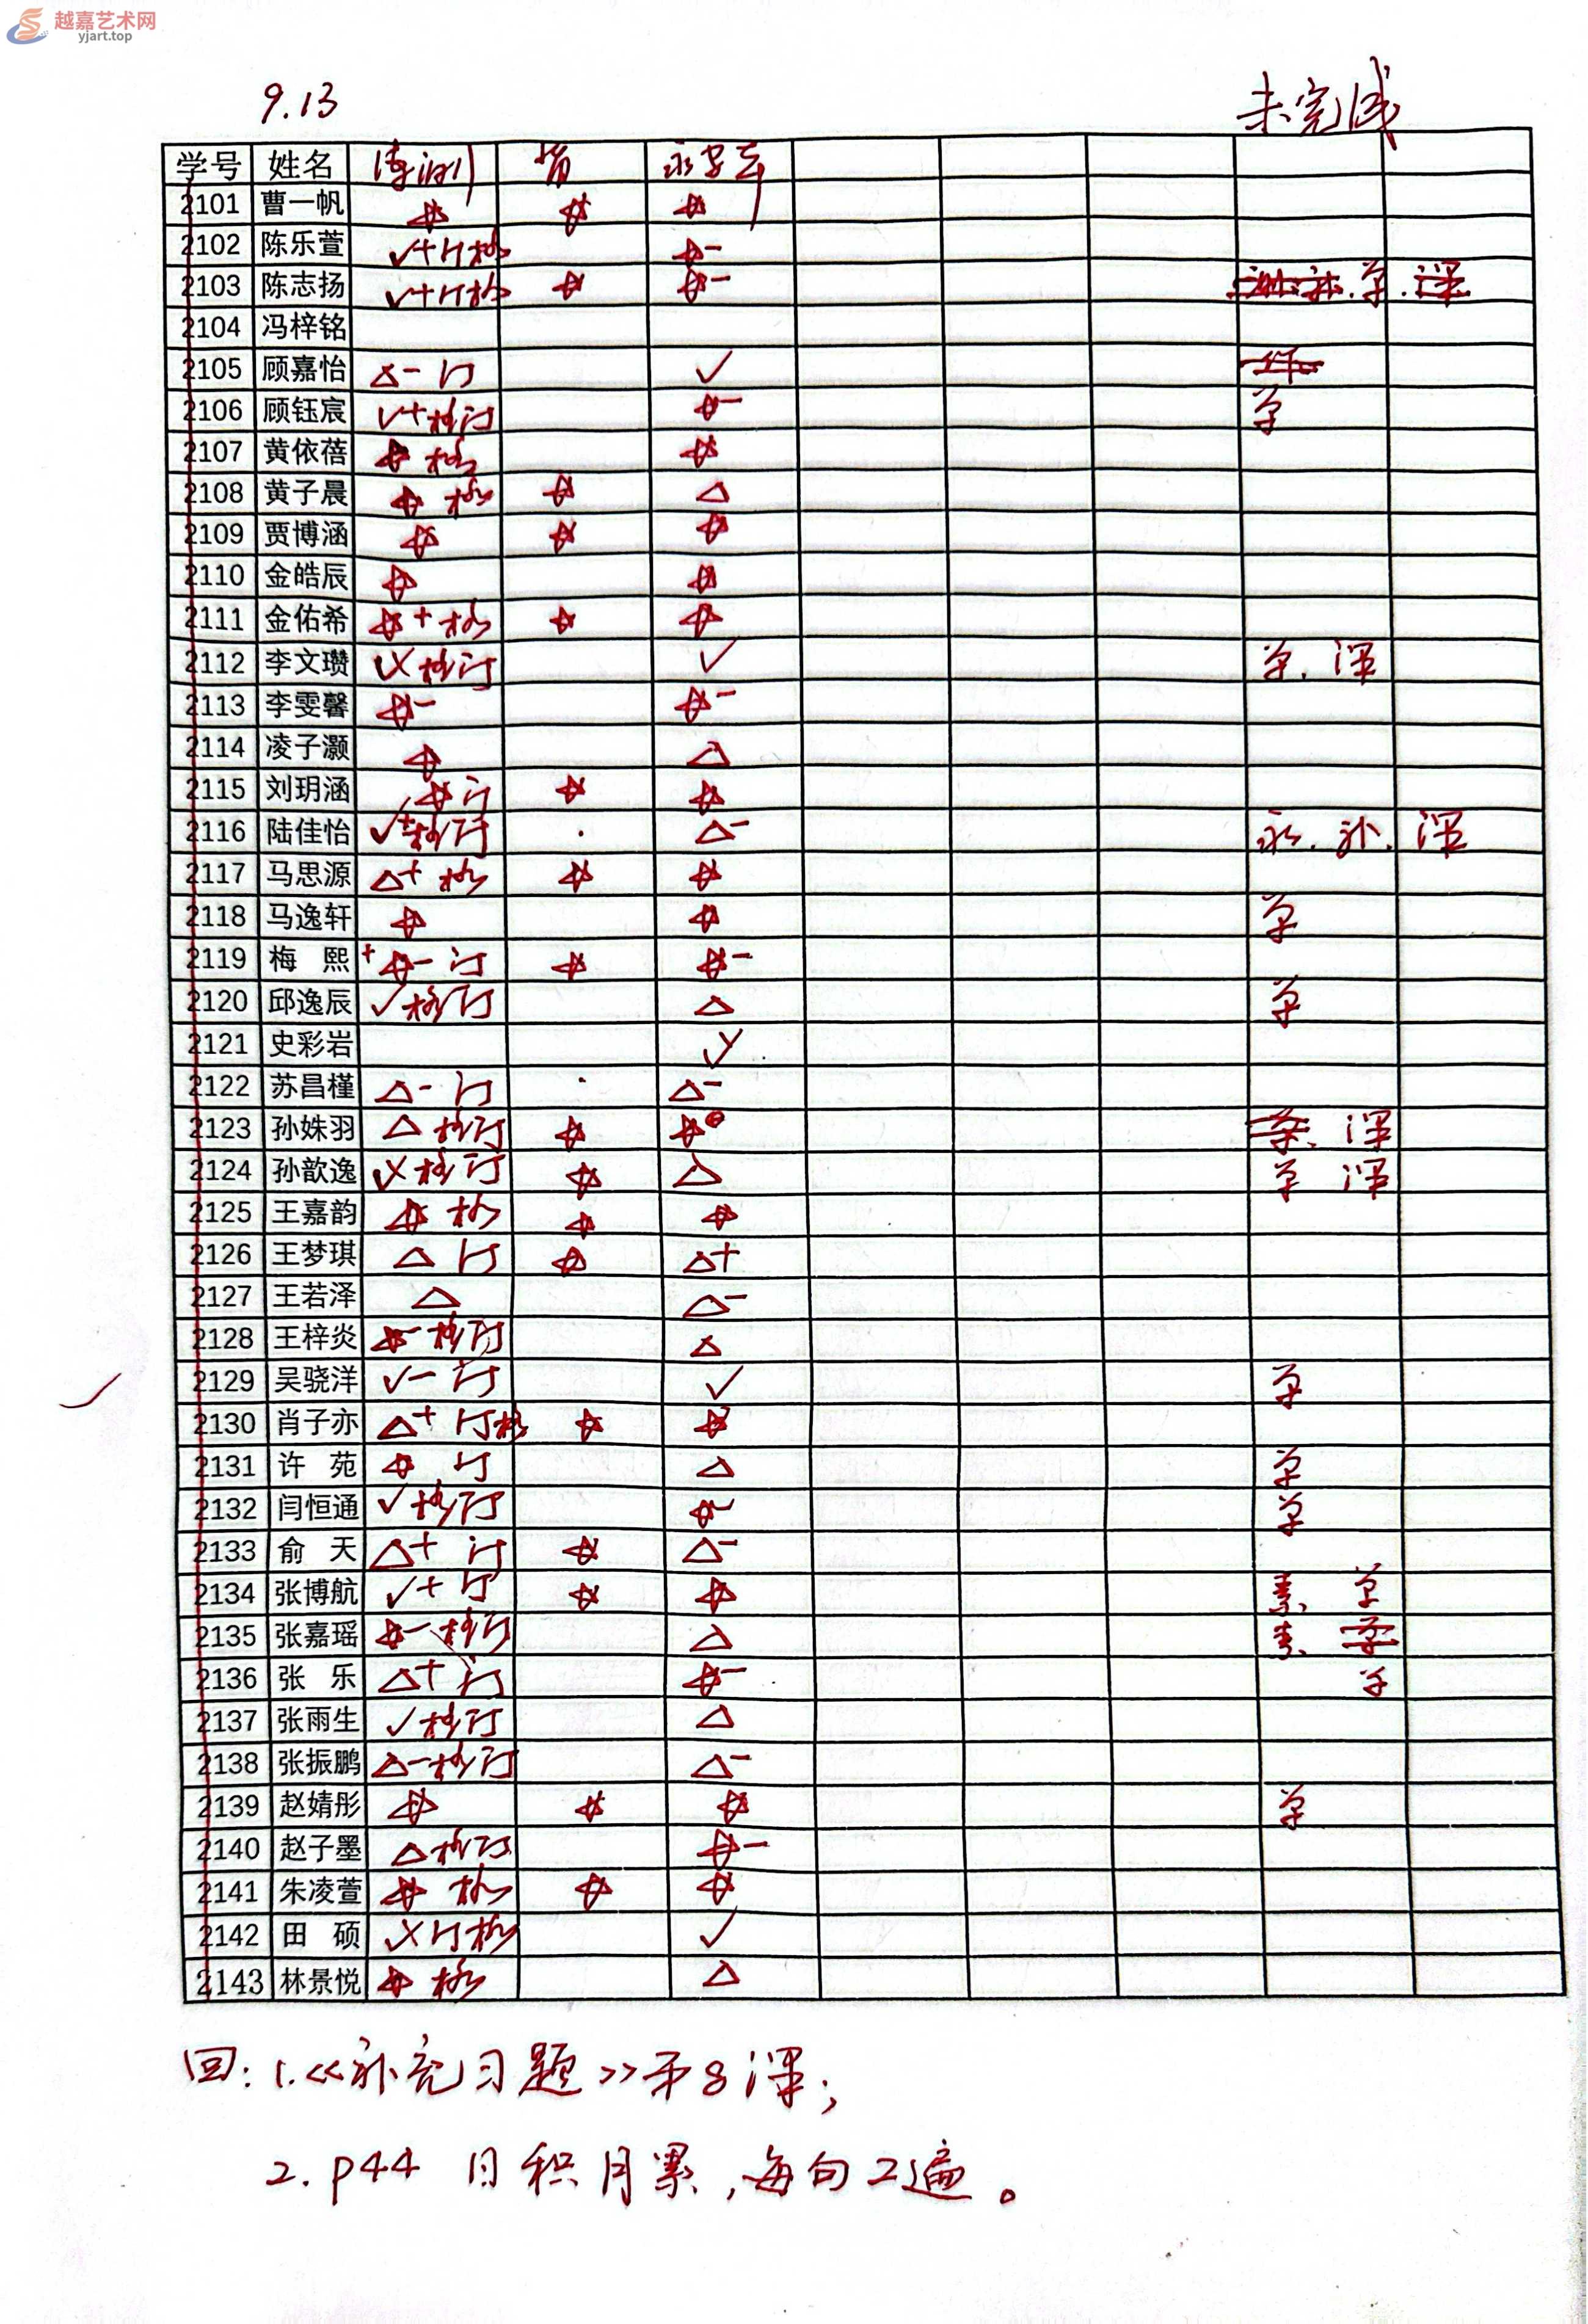 越嘉艺术网
yjart.top
9.13
未完成
学号 姓名 背 永安
2101 曹一帆 ☆ ☆ ☆
2102 陈乐萱 ✓+订格 ☆-
2103 陈志扬 ✓+订格 ☆ ☆- 草.课
2104 冯梓铭
2105 顾嘉怡 △-订 ✓
2106 顾钰宸 ✓+格订 ☆- 草
2107 黄依蓓 ☆格 ☆
2108 黄子晨 ☆格 ☆ △
2109 贾博涵 ☆ ☆ ☆
2110 金皓辰 ☆ ☆
2111 金佑希 ☆+格 ☆ ☆
2112 李文瓒 格订 ✓ 草.课
2113 李雯馨 ☆- ☆-
2114 凌子灏 ☆ △
2115 刘玥涵 ☆订 ☆ ☆
2116 陆佳怡 ✓格订 △- 永.补.课
2117 马思源 △+格 ☆ ☆
2118 马逸轩 ☆ ☆ 草
2119 梅熙 +☆-订 ☆ ☆-
2120 邱逸辰 ✓格订 △ 草
2121 史彩岩
2122 苏昌槿 △-订 △-
2123 孙姝羽 △格订 ☆ ☆ 课
2124 孙歆逸 格订 ☆ △ 草 课
2125 王嘉韵 ☆格 ☆ ☆
2126 王梦琪 △订 ☆ △+
2127 王若泽 △ △-
2128 王梓炎 ☆-格订 △
2129 吴骁洋 ✓-订 ✓ 草
2130 肖子亦 △+订格 ☆ ☆
2131 许苑 ☆订 △ 草
2132 闫恒通 ✓格订 ☆- 草
2133 俞天 △+订 ☆ △-
2134 张博航 ✓+订 ☆ ☆ 素、草
2135 张嘉瑶 ☆-格订 △ 素、草
2136 张乐 △+订 ☆- 草
2137 张雨生 ✓格订 △
2138 张振鹏 △-格订 △-
2139 赵婧彤 ☆ ☆ ☆ 草
2140 赵子墨 △格订 ☆-
2141 朱凌萱 ☆格 ☆ ☆
2142 田硕 订格 ✓
2143 林景悦 ☆格 △
回:1.《补充习题》第8课;
2.P44 日积月累,每句2遍。